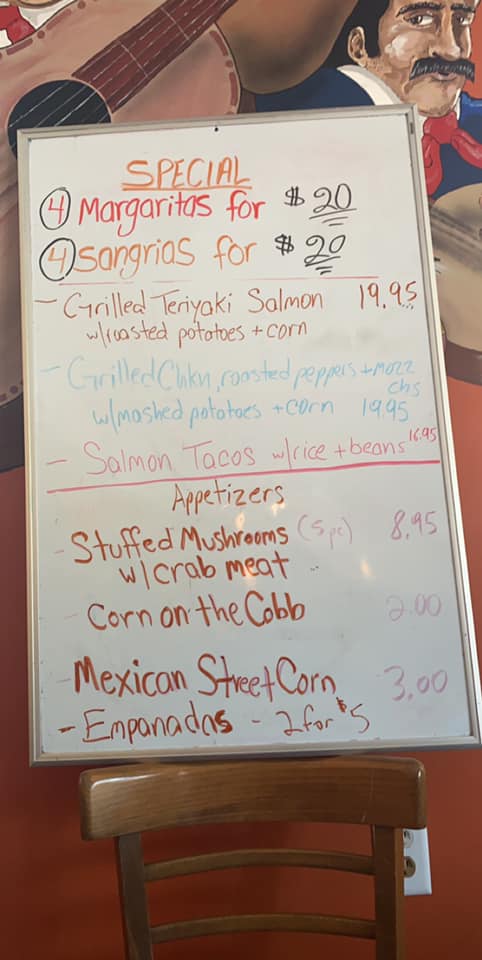 SPECIAL
4 Margaritas for $20
4 Sangrias for $20
- Grilled Teriyaki Salmon 19.95
w/roasted potatoes + corn
- Grilled Chkn, roasted peppers + mozz
chs
w/mashed potatoes + corn 19.95
- Salmon Tacos w/rice + beans 16.95
Appetizers
- Stuffed Mushrooms (5 pc) 8.95
w/crab meat
- Corn on the Cobb 2.00
- Mexican Street Corn 3.00
- Empanadas - 2 for $5